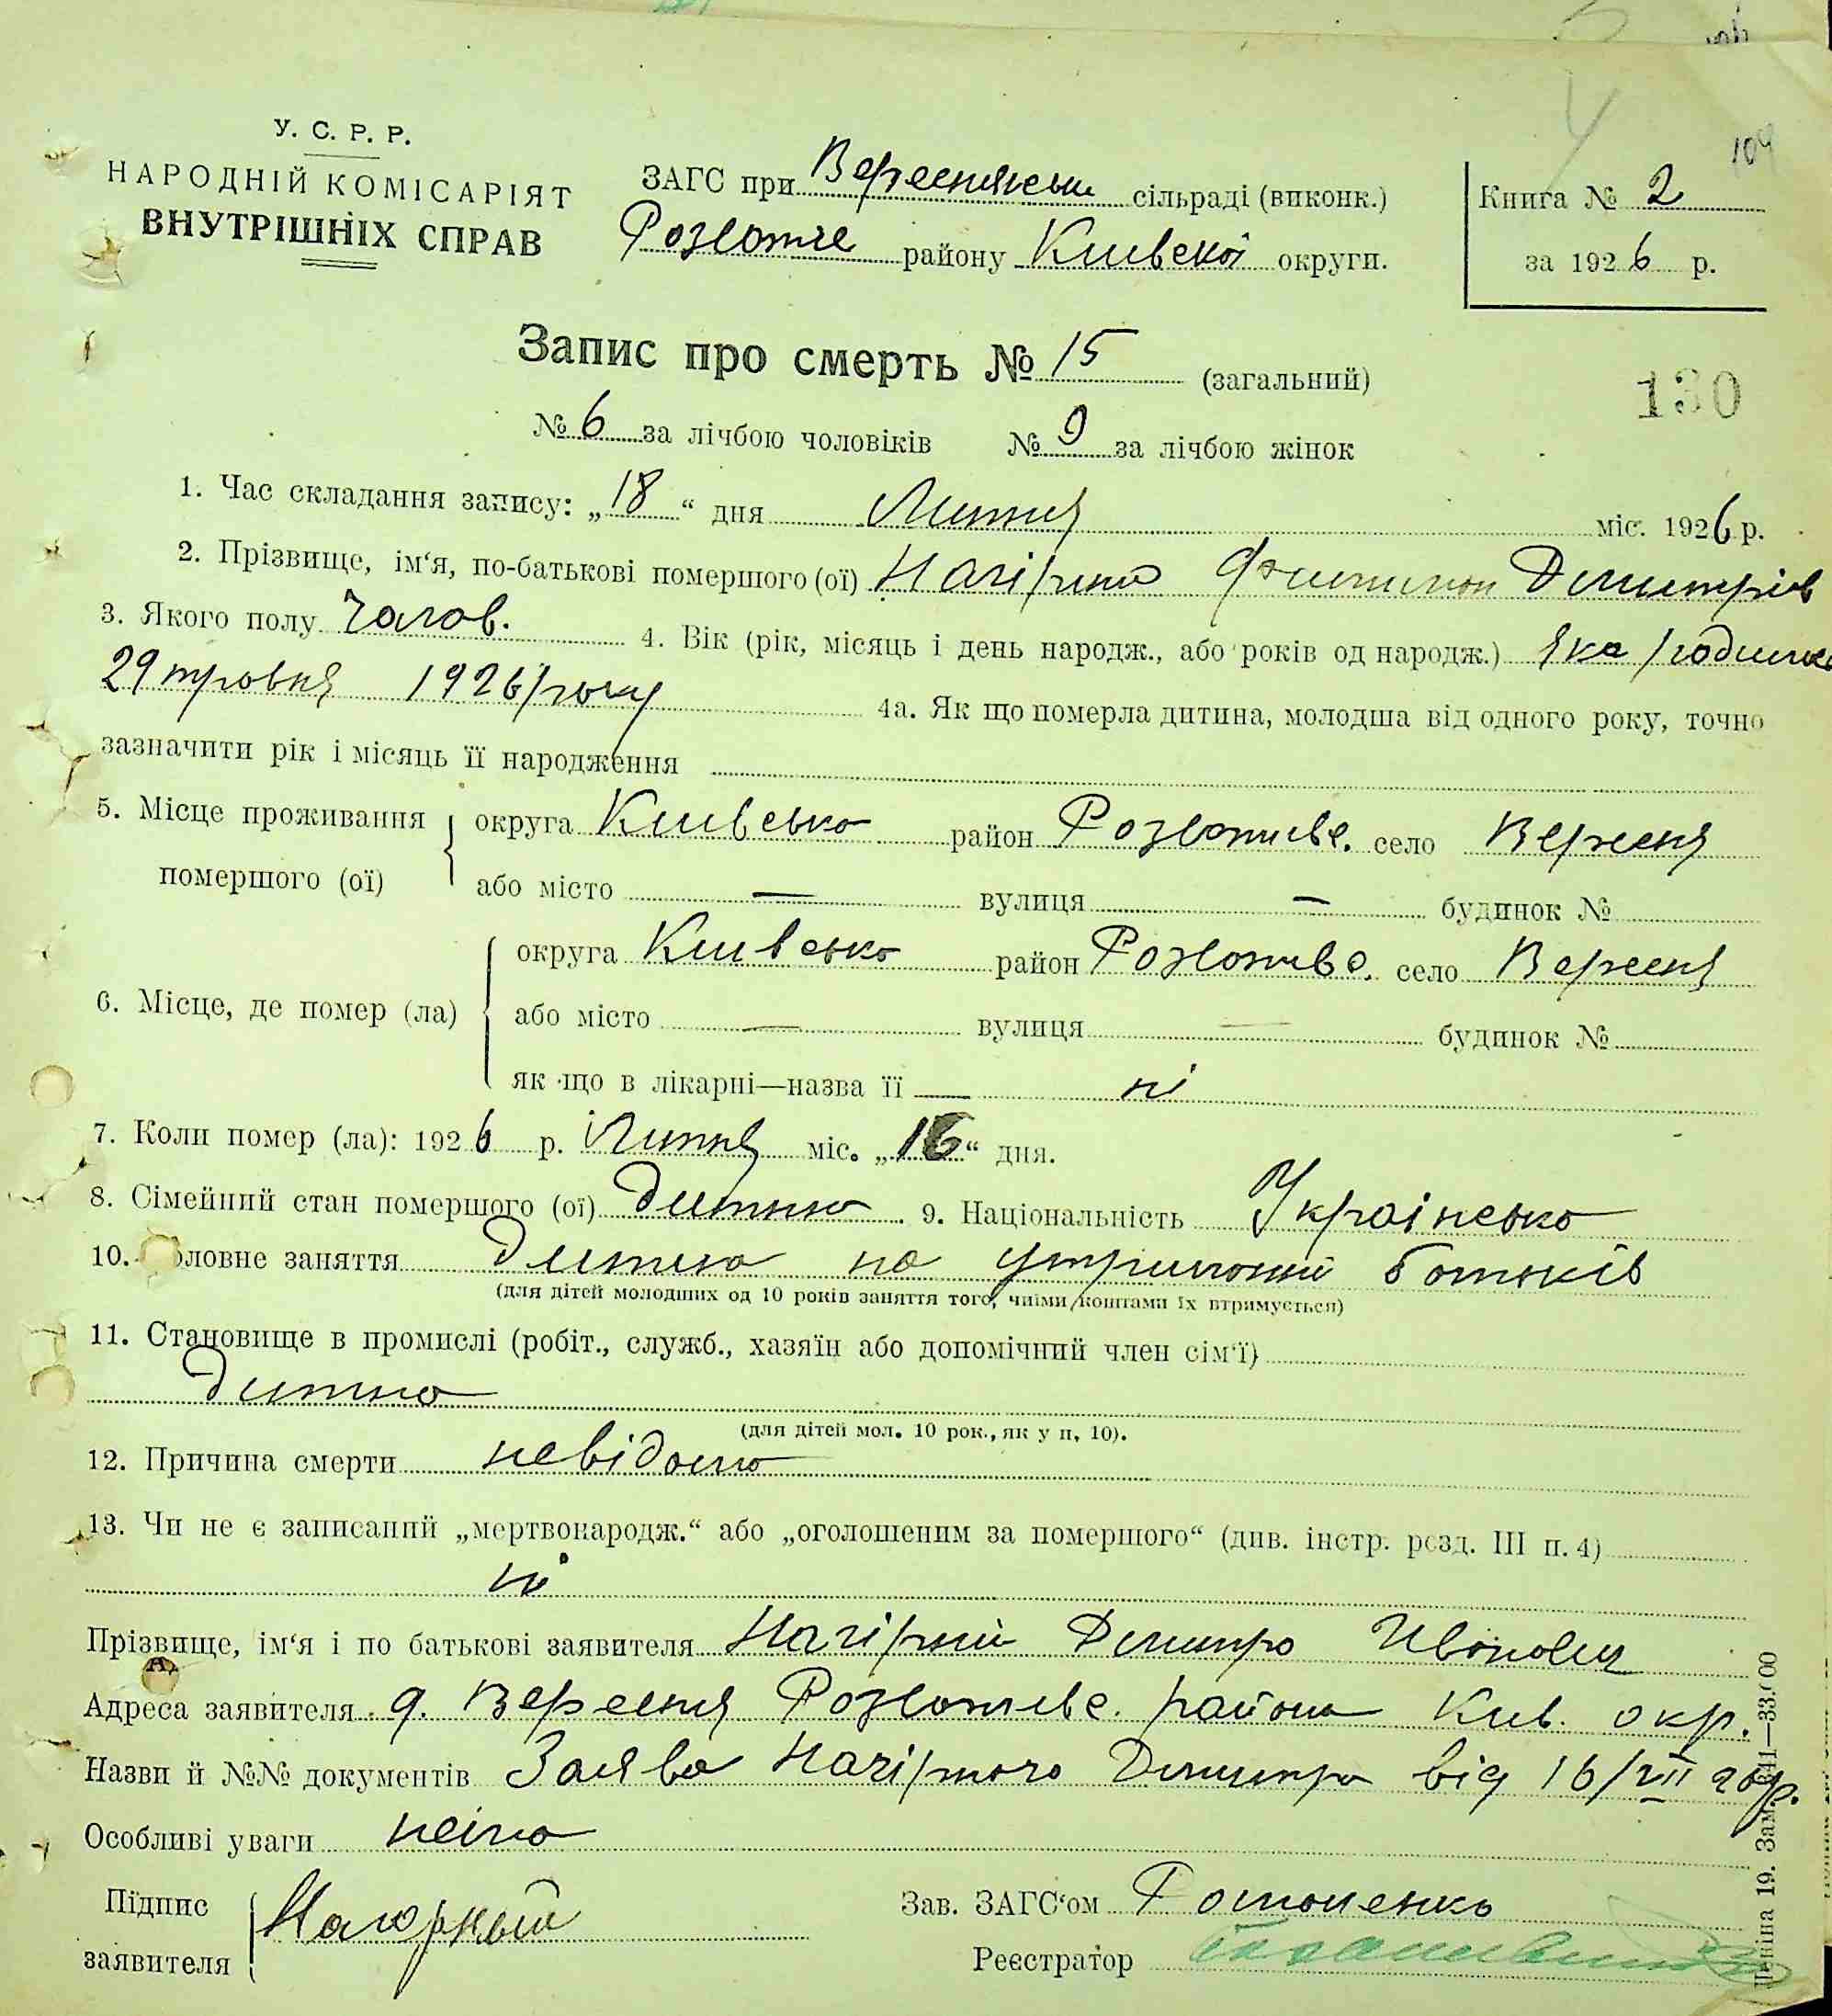 У. С. Р. Р.
НАРОДНІЙ КОМІСАРІЯТ
ВНУТРІШНІХ СПРАВ
ЗАГС при сільраді (виконк.)
району Київскої округи.
Книга № 2
за 1926 р.
104
Запис про смерть № 15 (загальний)
130
№ 6 за лічбою чоловіків № 9 за лічбою жінок
1. Час складання запису: „18“ дня Липня міс. 1926 р.
2. Прізвище, ім‘я, по-батькові помершого (ої) Нагірний Дмитрів
3. Якого полу Чолов. 4. Вік (рік, місяць і день народж., або років од народж.) яка родилась
29 травня 1926 року 4а. Як що померла дитина, молодша від одного року, точно
зазначити рік і місяць її народження
5. Місце проживання округа Київсько район Розважівс. село Вересня
помершого (ої) або місто — вулиця — будинок №
6. Місце, де помер (ла) округа Київсько район Розважівс. село Вересня
або місто — вулиця — будинок №
як що в лікарні—назва її — ні
7. Коли помер (ла): 1926 р. Липня міс. „16“ дня.
8. Сімейний стан помершого (ої) дитина 9. Національність Українсько
10. ловне заняття Дитина на утриманні батьків
(для дітей молодших од 10 років заняття того, чиїми коштами їх втримується)
11. Становище в промислі (робіт., служб., хазяїн або допомічний член сім‘ї)
дитина
(для дітей мол. 10 рок., як у п. 10).
12. Причина смерти невідомо
13. Чи не є записаний „мертвонародж.“ або „оголошеним за помершого“ (див. інстр. розд. III п. 4)
ні
Прізвище, ім‘я і по батькові заявителя Нагірний Дмитро Іванович
Адреса заявителя д. Вересня Розважівс. района Київ. окр.
Назви й №№ документів Заява Нагірного Дмитра від 16/VII 26 р.
Особливі уваги неіма
Підпис заявителя Нагорный
Зав. ЗАГС‘ом
Реєстратор
19. Зам. 341—33.000